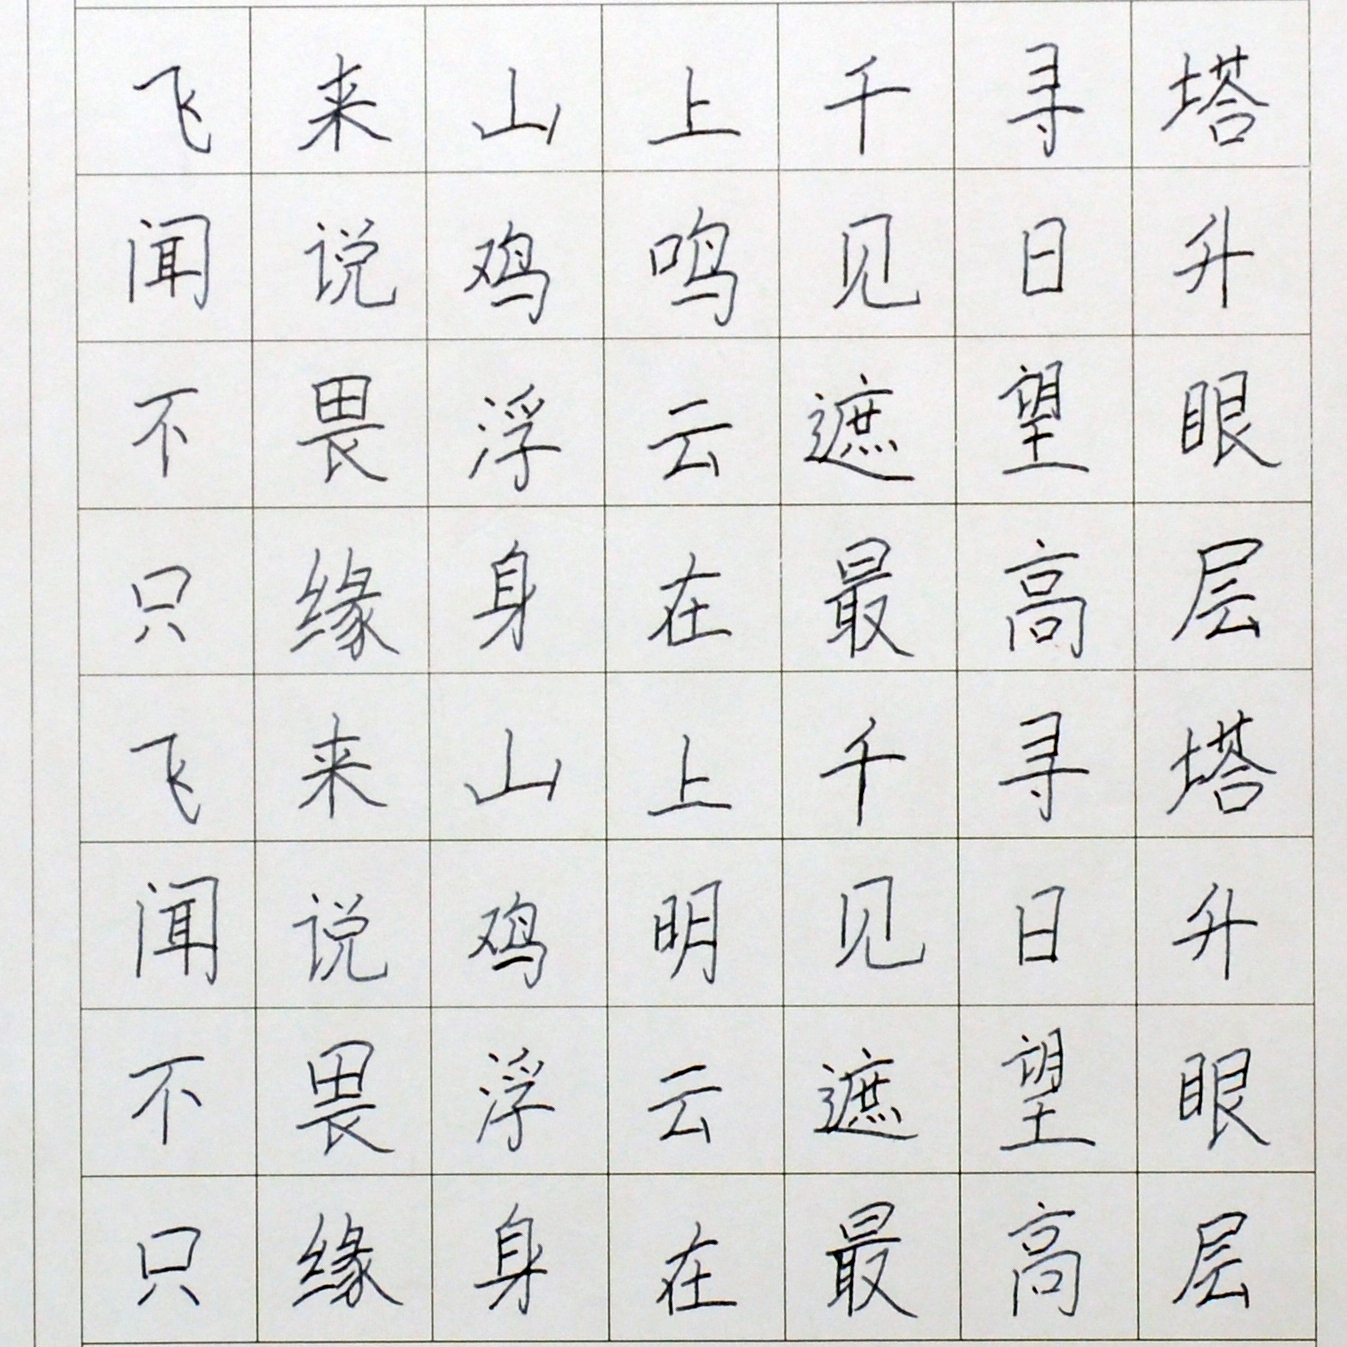 飞来山上千寻塔
闻说鸡鸣见日升
不畏浮云遮望眼
只缘身在最高层
飞来山上千寻塔
闻说鸡明见日升
不畏浮云遮望眼
只缘身在最高层